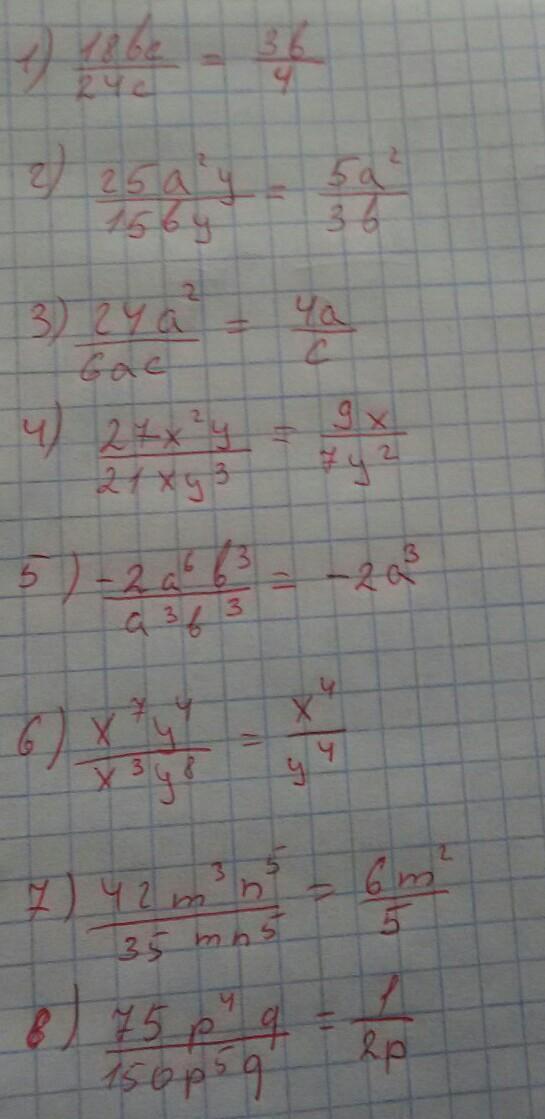 1) 18bc/24c = 3b/4
2) 25a²y/15by = 5a²/3b
3) 24a²/6ac = 4a/c
4) 27x²y/21xy³ = 9x/7y²
5) -2a⁶b³/a³b³ = -2a³
6) x⁷y⁴/x³y⁸ = x⁴/y⁴
7) 42m³n⁵/35mn⁵ = 6m²/5
8) 75p⁴q/150p⁵q = 1/2p